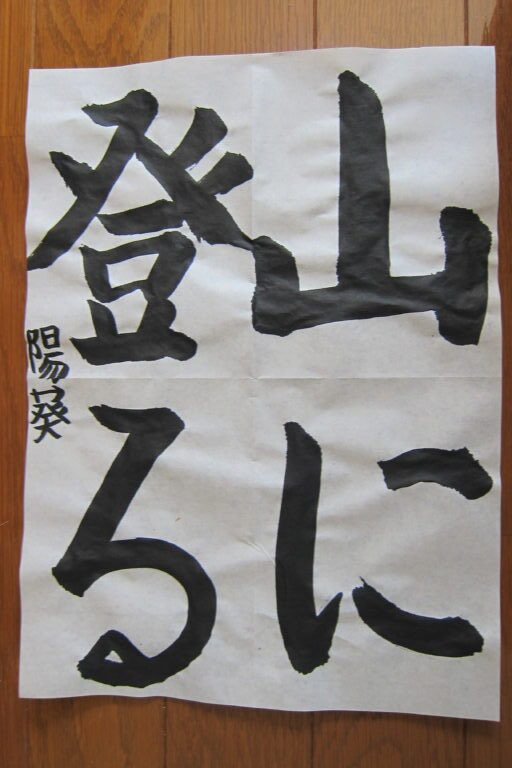 山に
登る
陽葵